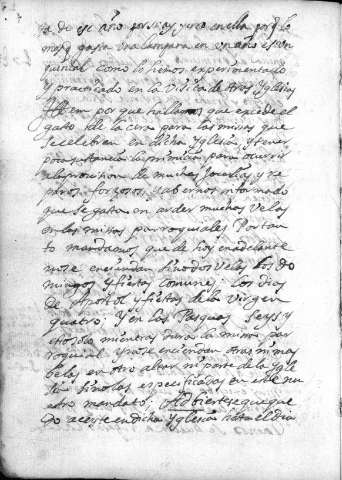 ta de ese año
mas gasta una lampara en un año es un
quintal como lo hemos experimentado
y praticado en la Visita de otras Yglesias
Ytem por que hallamos que excede al
gasto de la cera para las misas que
se celebran en dicha Yglesia, y tener
poca sustancia la primicia para ocurrir
a la provision de muchas Jocalias y re
paros forzosos, y abernos informado
que se gasta en arder muchas velas
en las misas parroquiales Por tan
to mandamos que de hoy en adelante
no se enciendan sino dos velas los do
mingos y fiestas comunes; Los dias
de Apostol y fiestas de la Virgen
quatro; Y en las Pasquas Seys y
esto solo mientras dura la misa par
roquial y no se enciendan otras ningunas
belas en otro altar ni parte de la Ygle
sia sino las especificadas en este nu
estro mandato; Adbiertese que que
do aceyte en dicha Yglesia hasta el dia